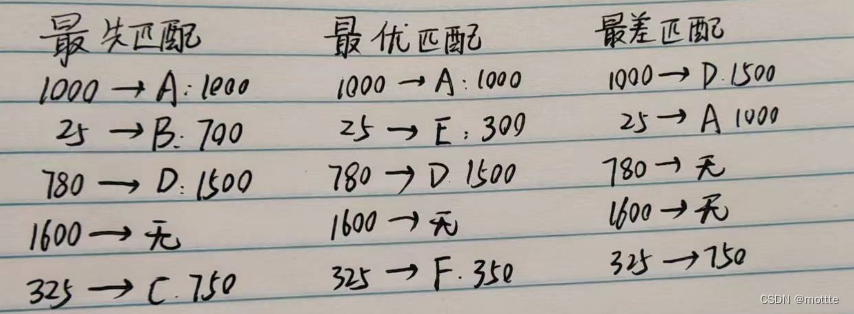 最先匹配 最优匹配 最差匹配
1000 → A: 1000 1000 → A: 1000 1000 → D. 1500
25 → B: 700 25 → E: 300 25 → A 1000
780 → D: 1500 780 → D 1500 780 → 无
1600 → 无 1600 → 无 1600 → 无
325 → C. 750 325 → F. 350 325 → 750
CSDN @mottte